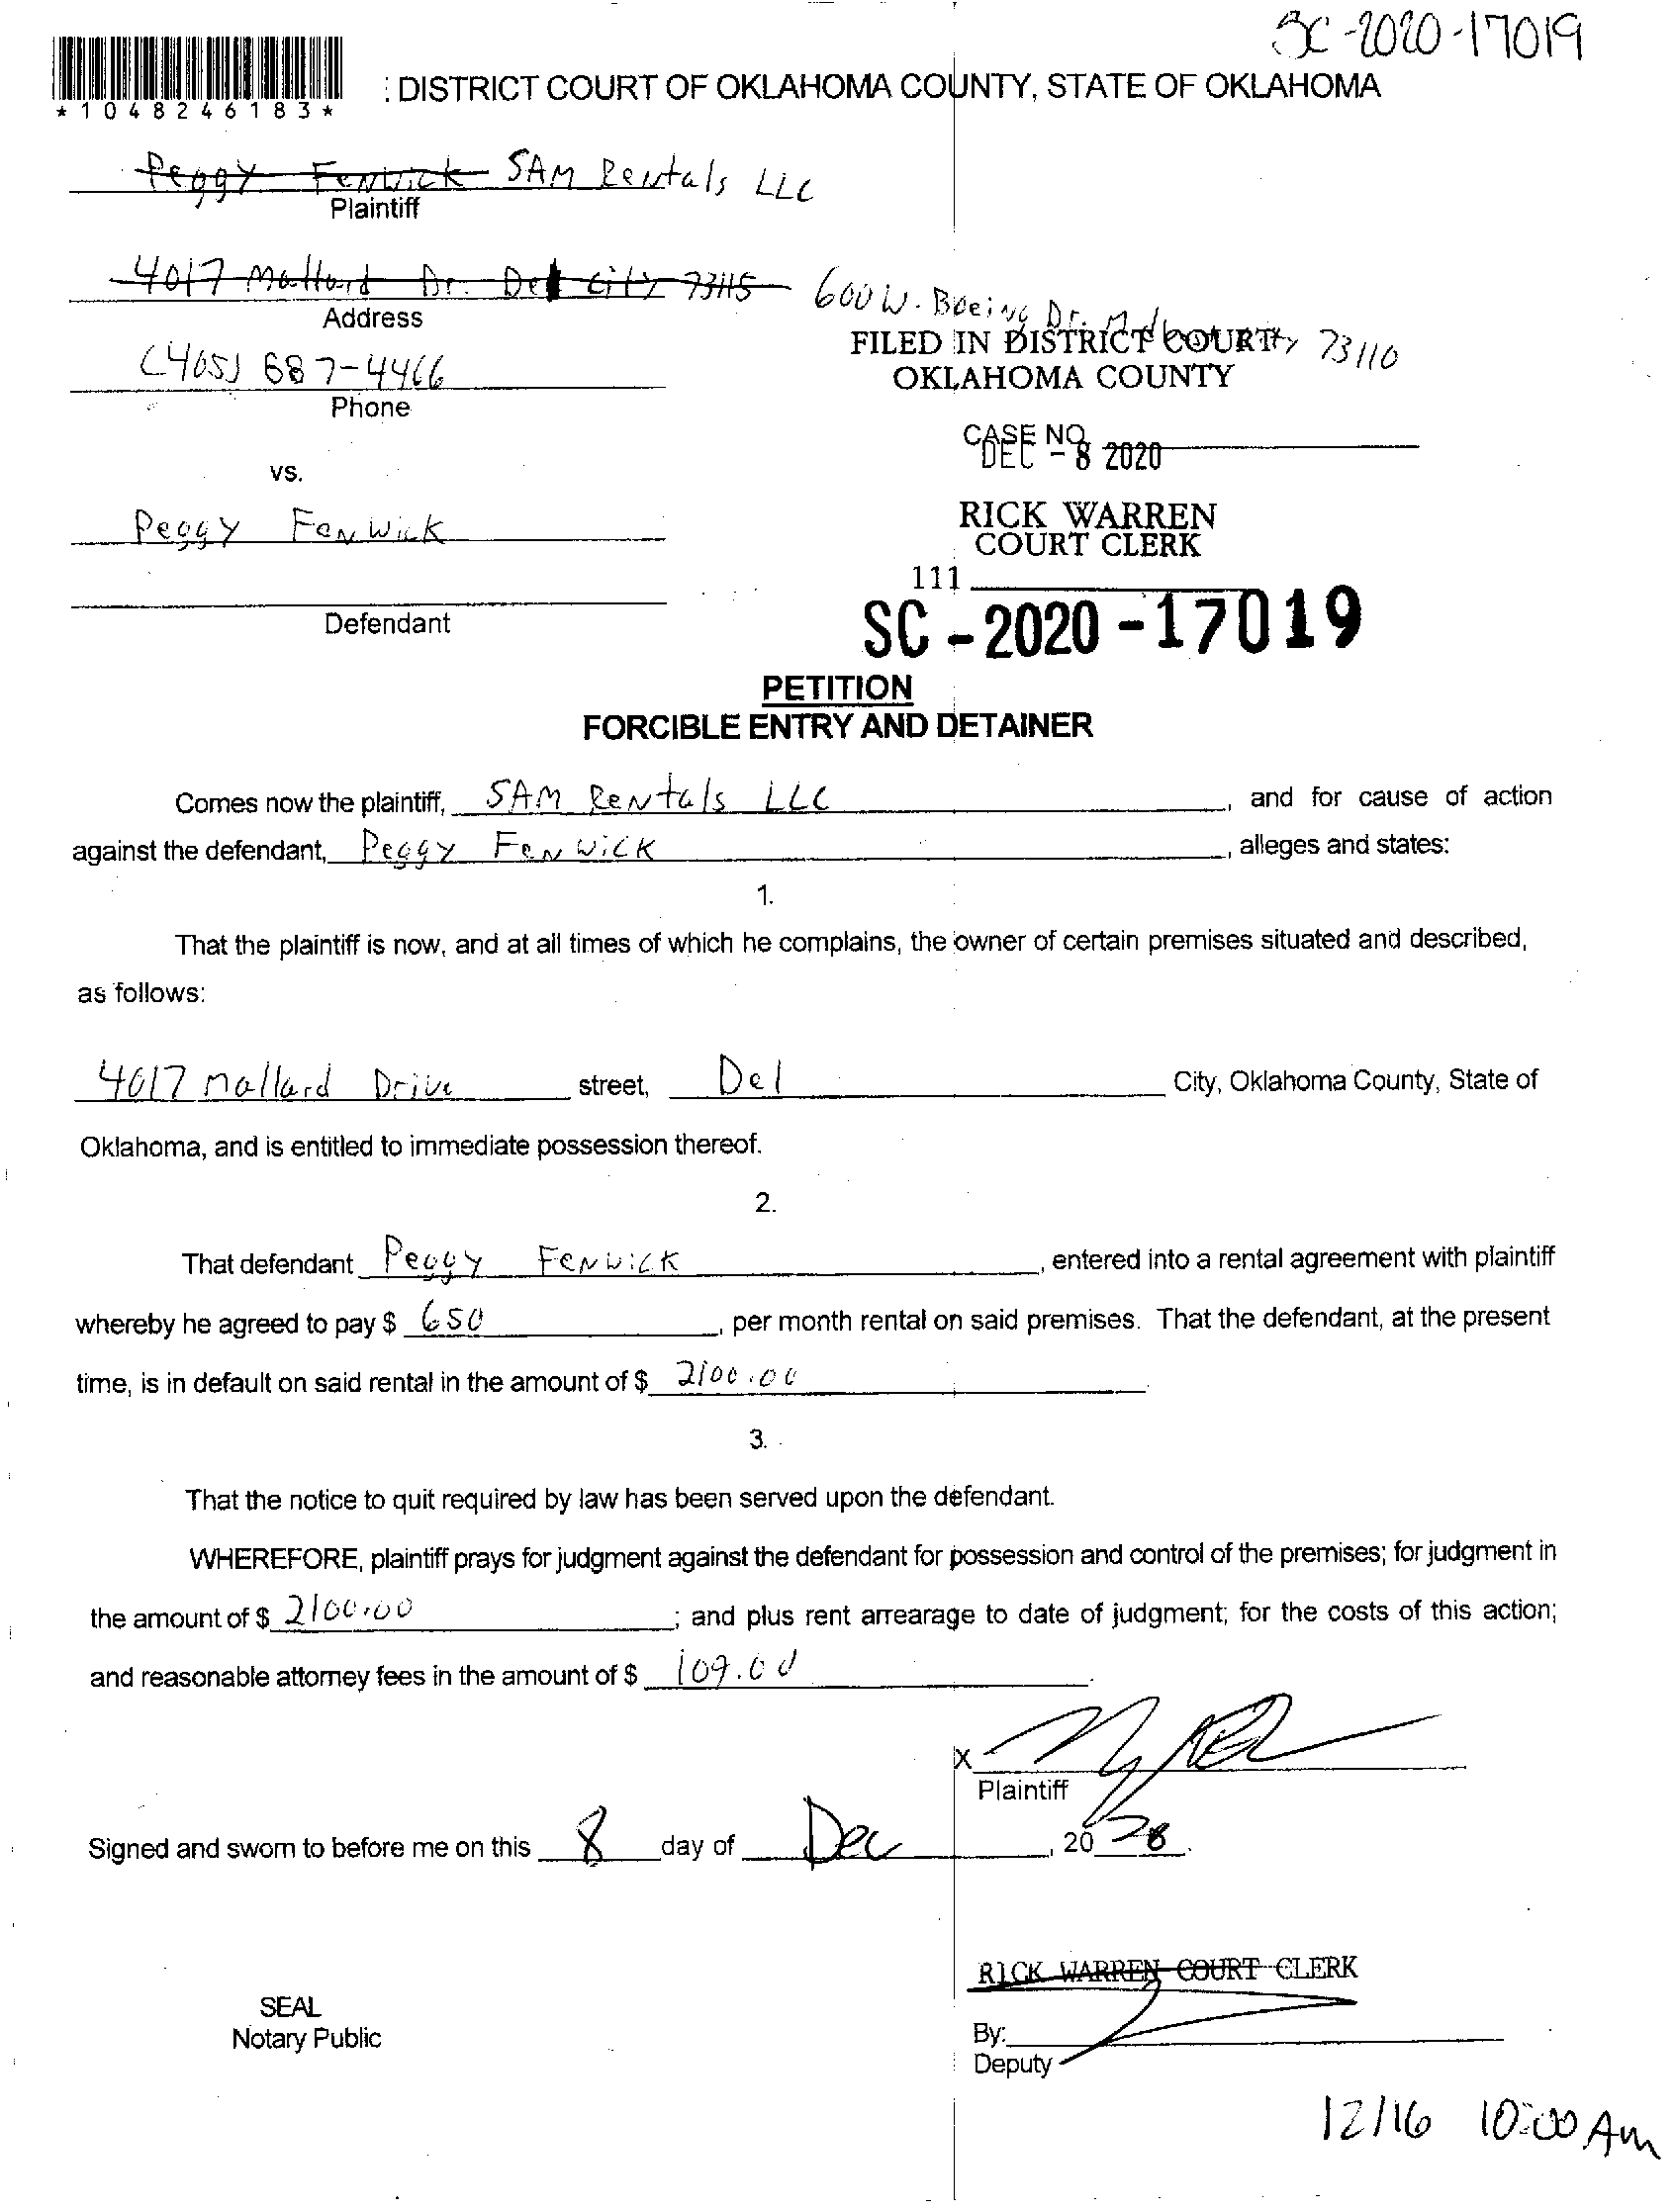 SC-2020-17019
: DISTRICT COURT OF OKLAHOMA COUNTY, STATE OF OKLAHOMA
*1048246183*
Peggy Fenwick SAM Rentals LLC
Plaintiff
4017 Mallard Dr. Del City 73115 600 W. Boeing Dr. 73110
Address
FILED IN DISTRICT COURT
(405) 687-4466
OKLAHOMA COUNTY
Phone
CASE NO.
DEC - 8 2020
vs.
Peggy Fenwick
RICK WARREN
COURT CLERK
111
Defendant
SC - 2020 - 17019
PETITION
FORCIBLE ENTRY AND DETAINER
Comes now the plaintiff, SAM Rentals LLC, and for cause of action
against the defendant, Peggy Fenwick, alleges and states:
1.
That the plaintiff is now, and at all times of which he complains, the owner of certain premises situated and described,
as follows:
4017 Mallard Drive street, Del City, Oklahoma County, State of
Oklahoma, and is entitled to immediate possession thereof.
2.
That defendant Peggy Fenwick, entered into a rental agreement with plaintiff
whereby he agreed to pay $ 650, per month rental on said premises. That the defendant, at the present
time, is in default on said rental in the amount of $ 2100.00.
3.
That the notice to quit required by law has been served upon the defendant.
WHEREFORE, plaintiff prays for judgment against the defendant for possession and control of the premises; for judgment in
the amount of $ 2100.00; and plus rent arrearage to date of judgment; for the costs of this action;
and reasonable attorney fees in the amount of $ 109.00.
X
Plaintiff
Signed and sworn to before me on this 8 day of Dec, 20 20.
RICK WARREN COURT CLERK
SEAL
Notary Public
By:
Deputy
12/16 10:00 Am